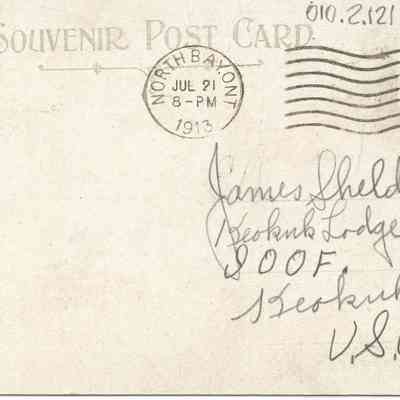 010.2.121
SOUVENIR POST CARD
NORTH BAY, ONT
JUL 21
8-PM
1913
James Sheld
Keokuk Lodge
I O O F.
Keokuk
U.S.